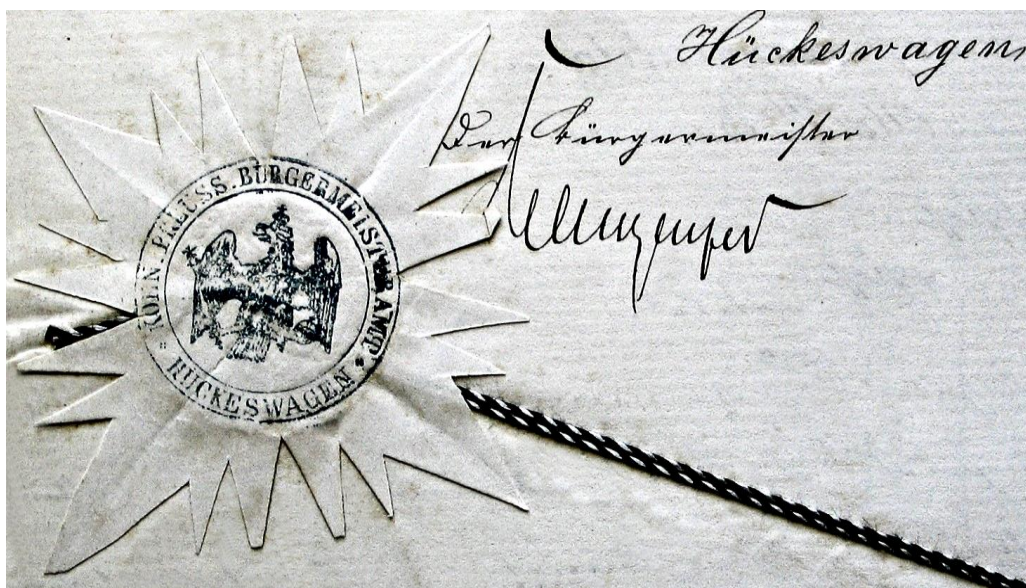 Hückeswagen,
Der Bürgermeister
KÖN. PREUSS. BÜRGERMEISTERAMT
* HÜCKESWAGEN *